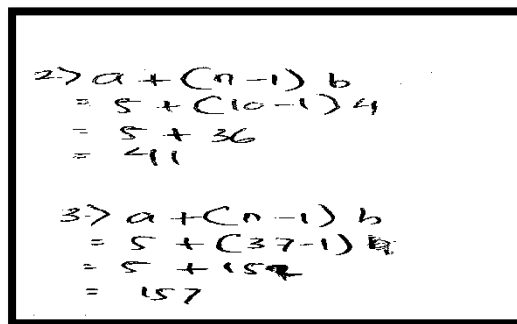 2> a + (n-1) b
= 5 + (10-1) 4
= 5 + 36
= 41
3> a + (n-1) b
= 5 + (37-1)
= 5 + 152
= 157